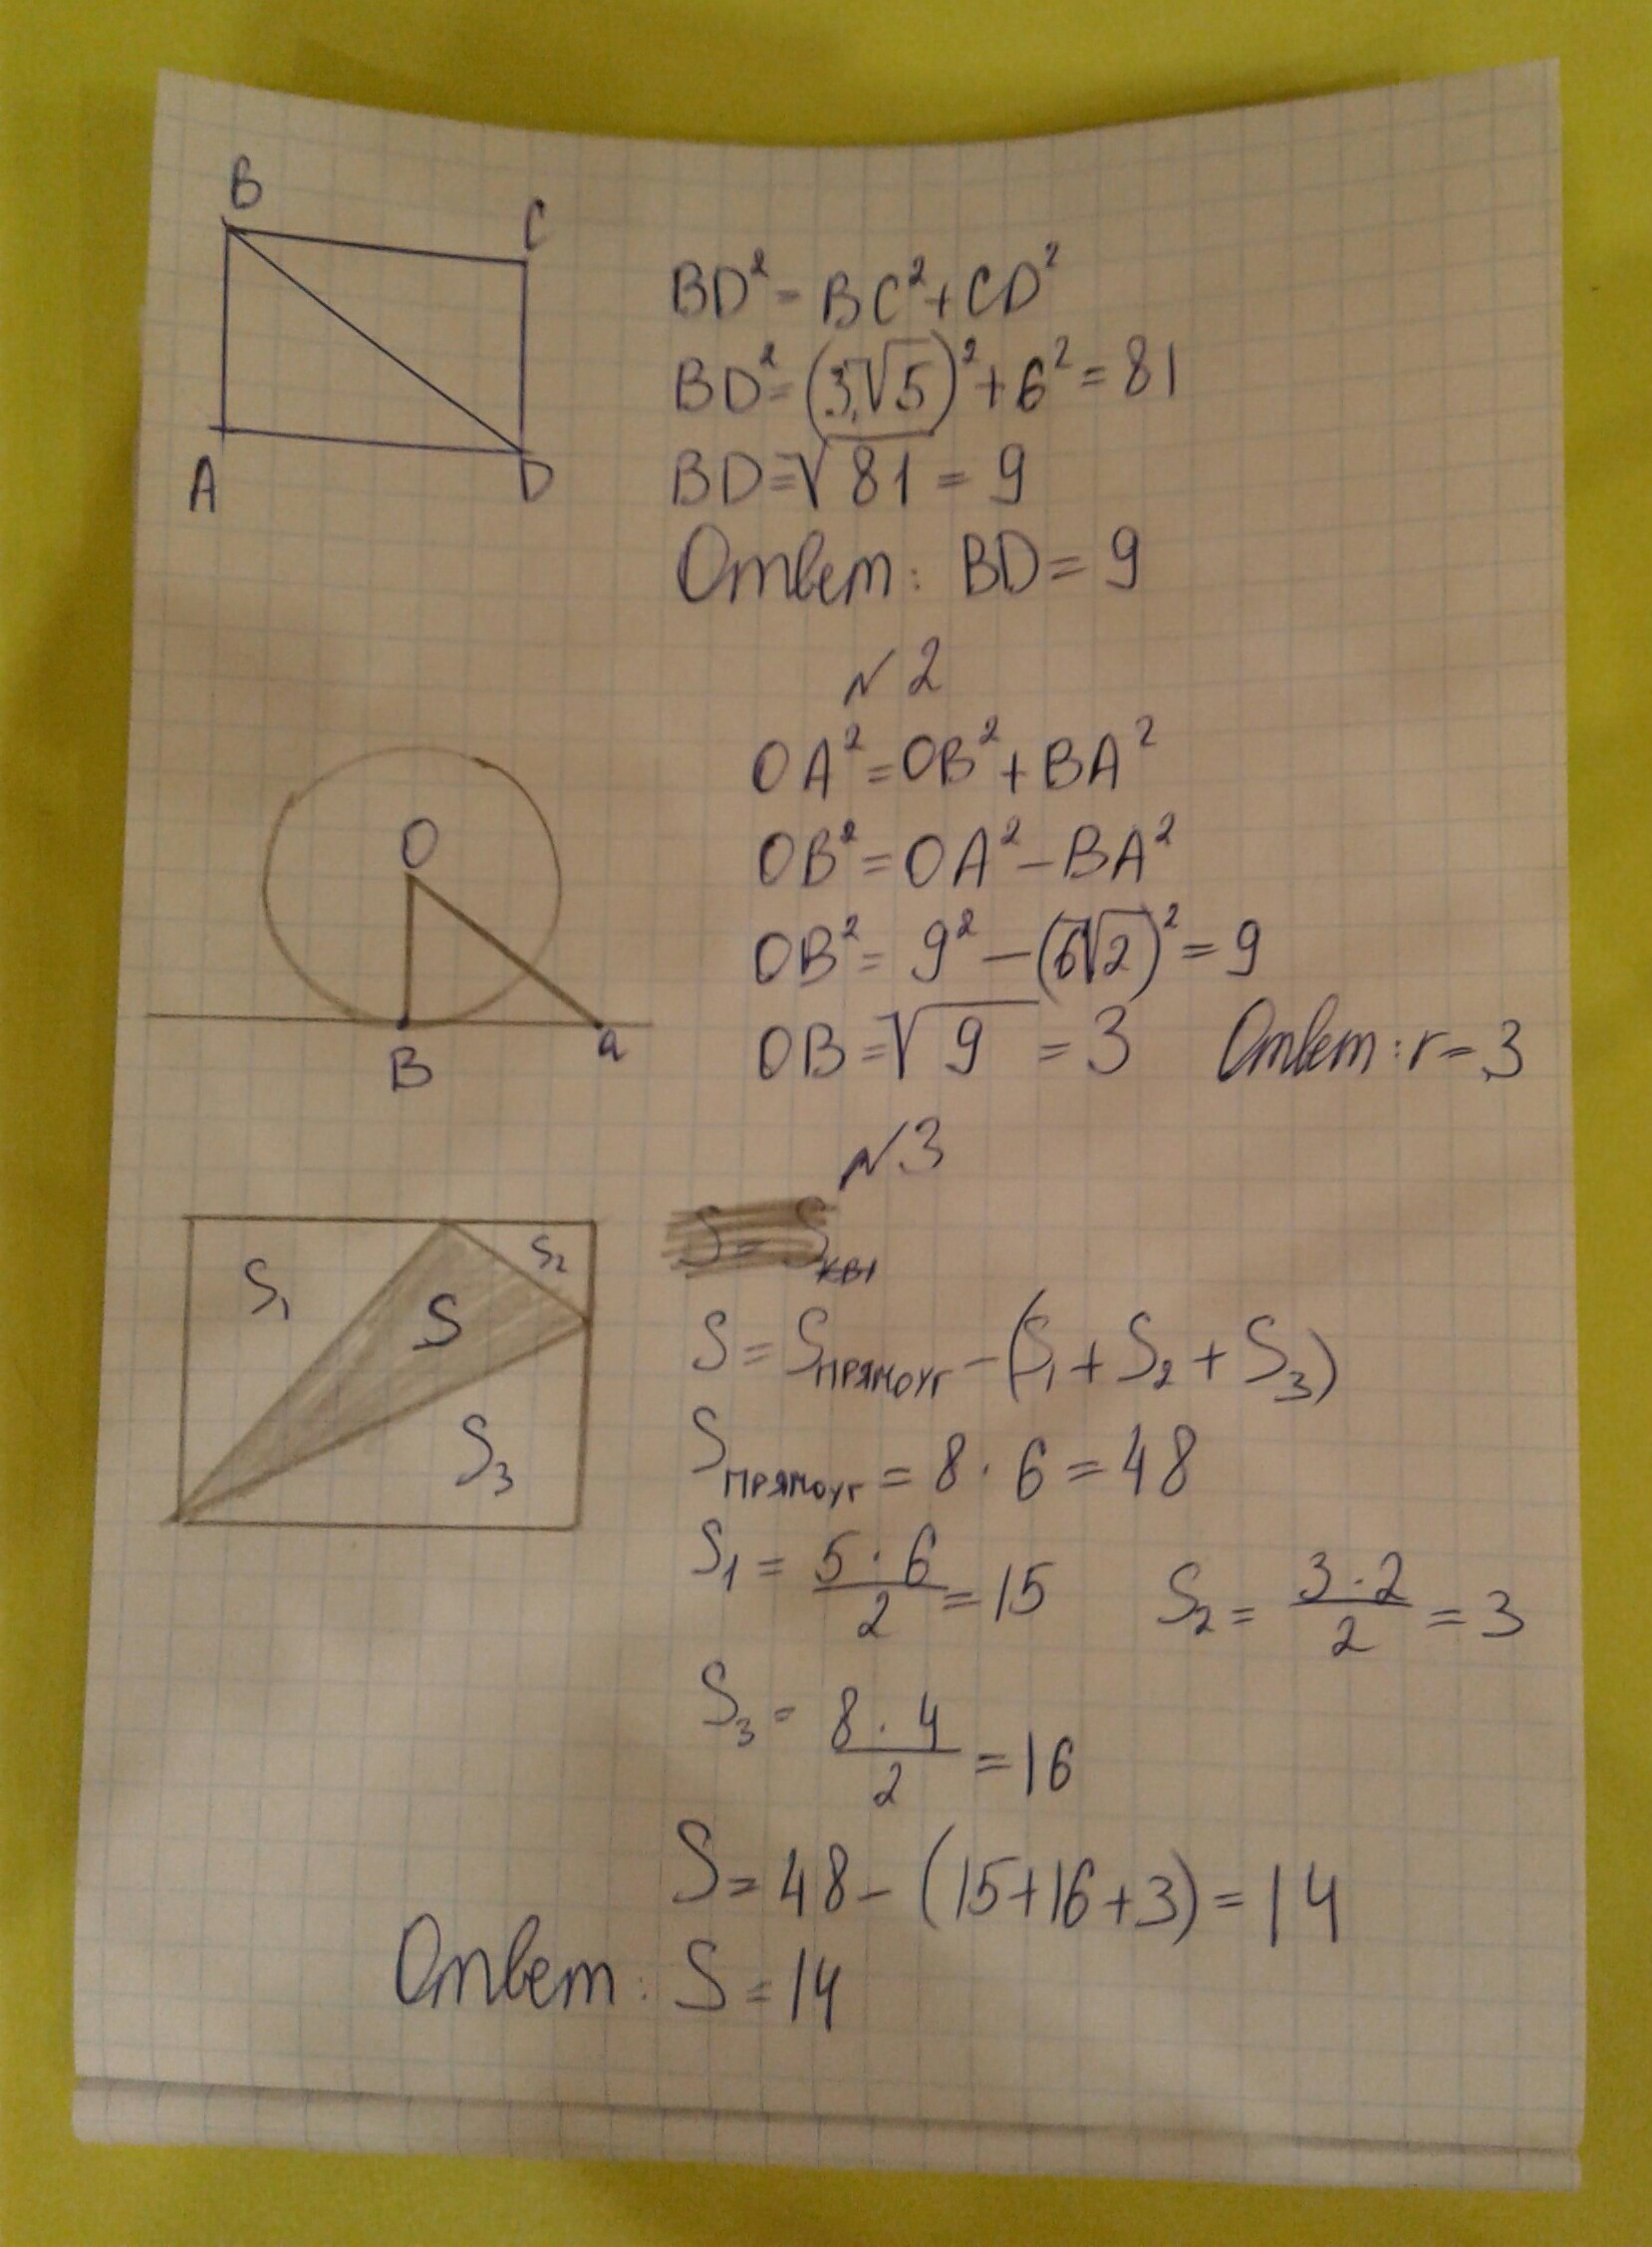 B
C
A
D
BD²=BC²+CD²
BD²=(3√5)²+6²=81
BD=√81=9
Ответ: BD=9
№2
O
B
a
OA²=OB²+BA²
OB²=OA²-BA²
OB²=9²-(6√2)²=9
OB=√9=3 Ответ: r=3
№3
S₁
S₂
S
S₃
S=Sпрямоуг-(S₁+S₂+S₃)
Sпрямоуг=8·6=48
S₁=5·6/2=15 S₂=3·2/2=3
S₃=8·4/2=16
S=48-(15+16+3)=14
Ответ: S=14